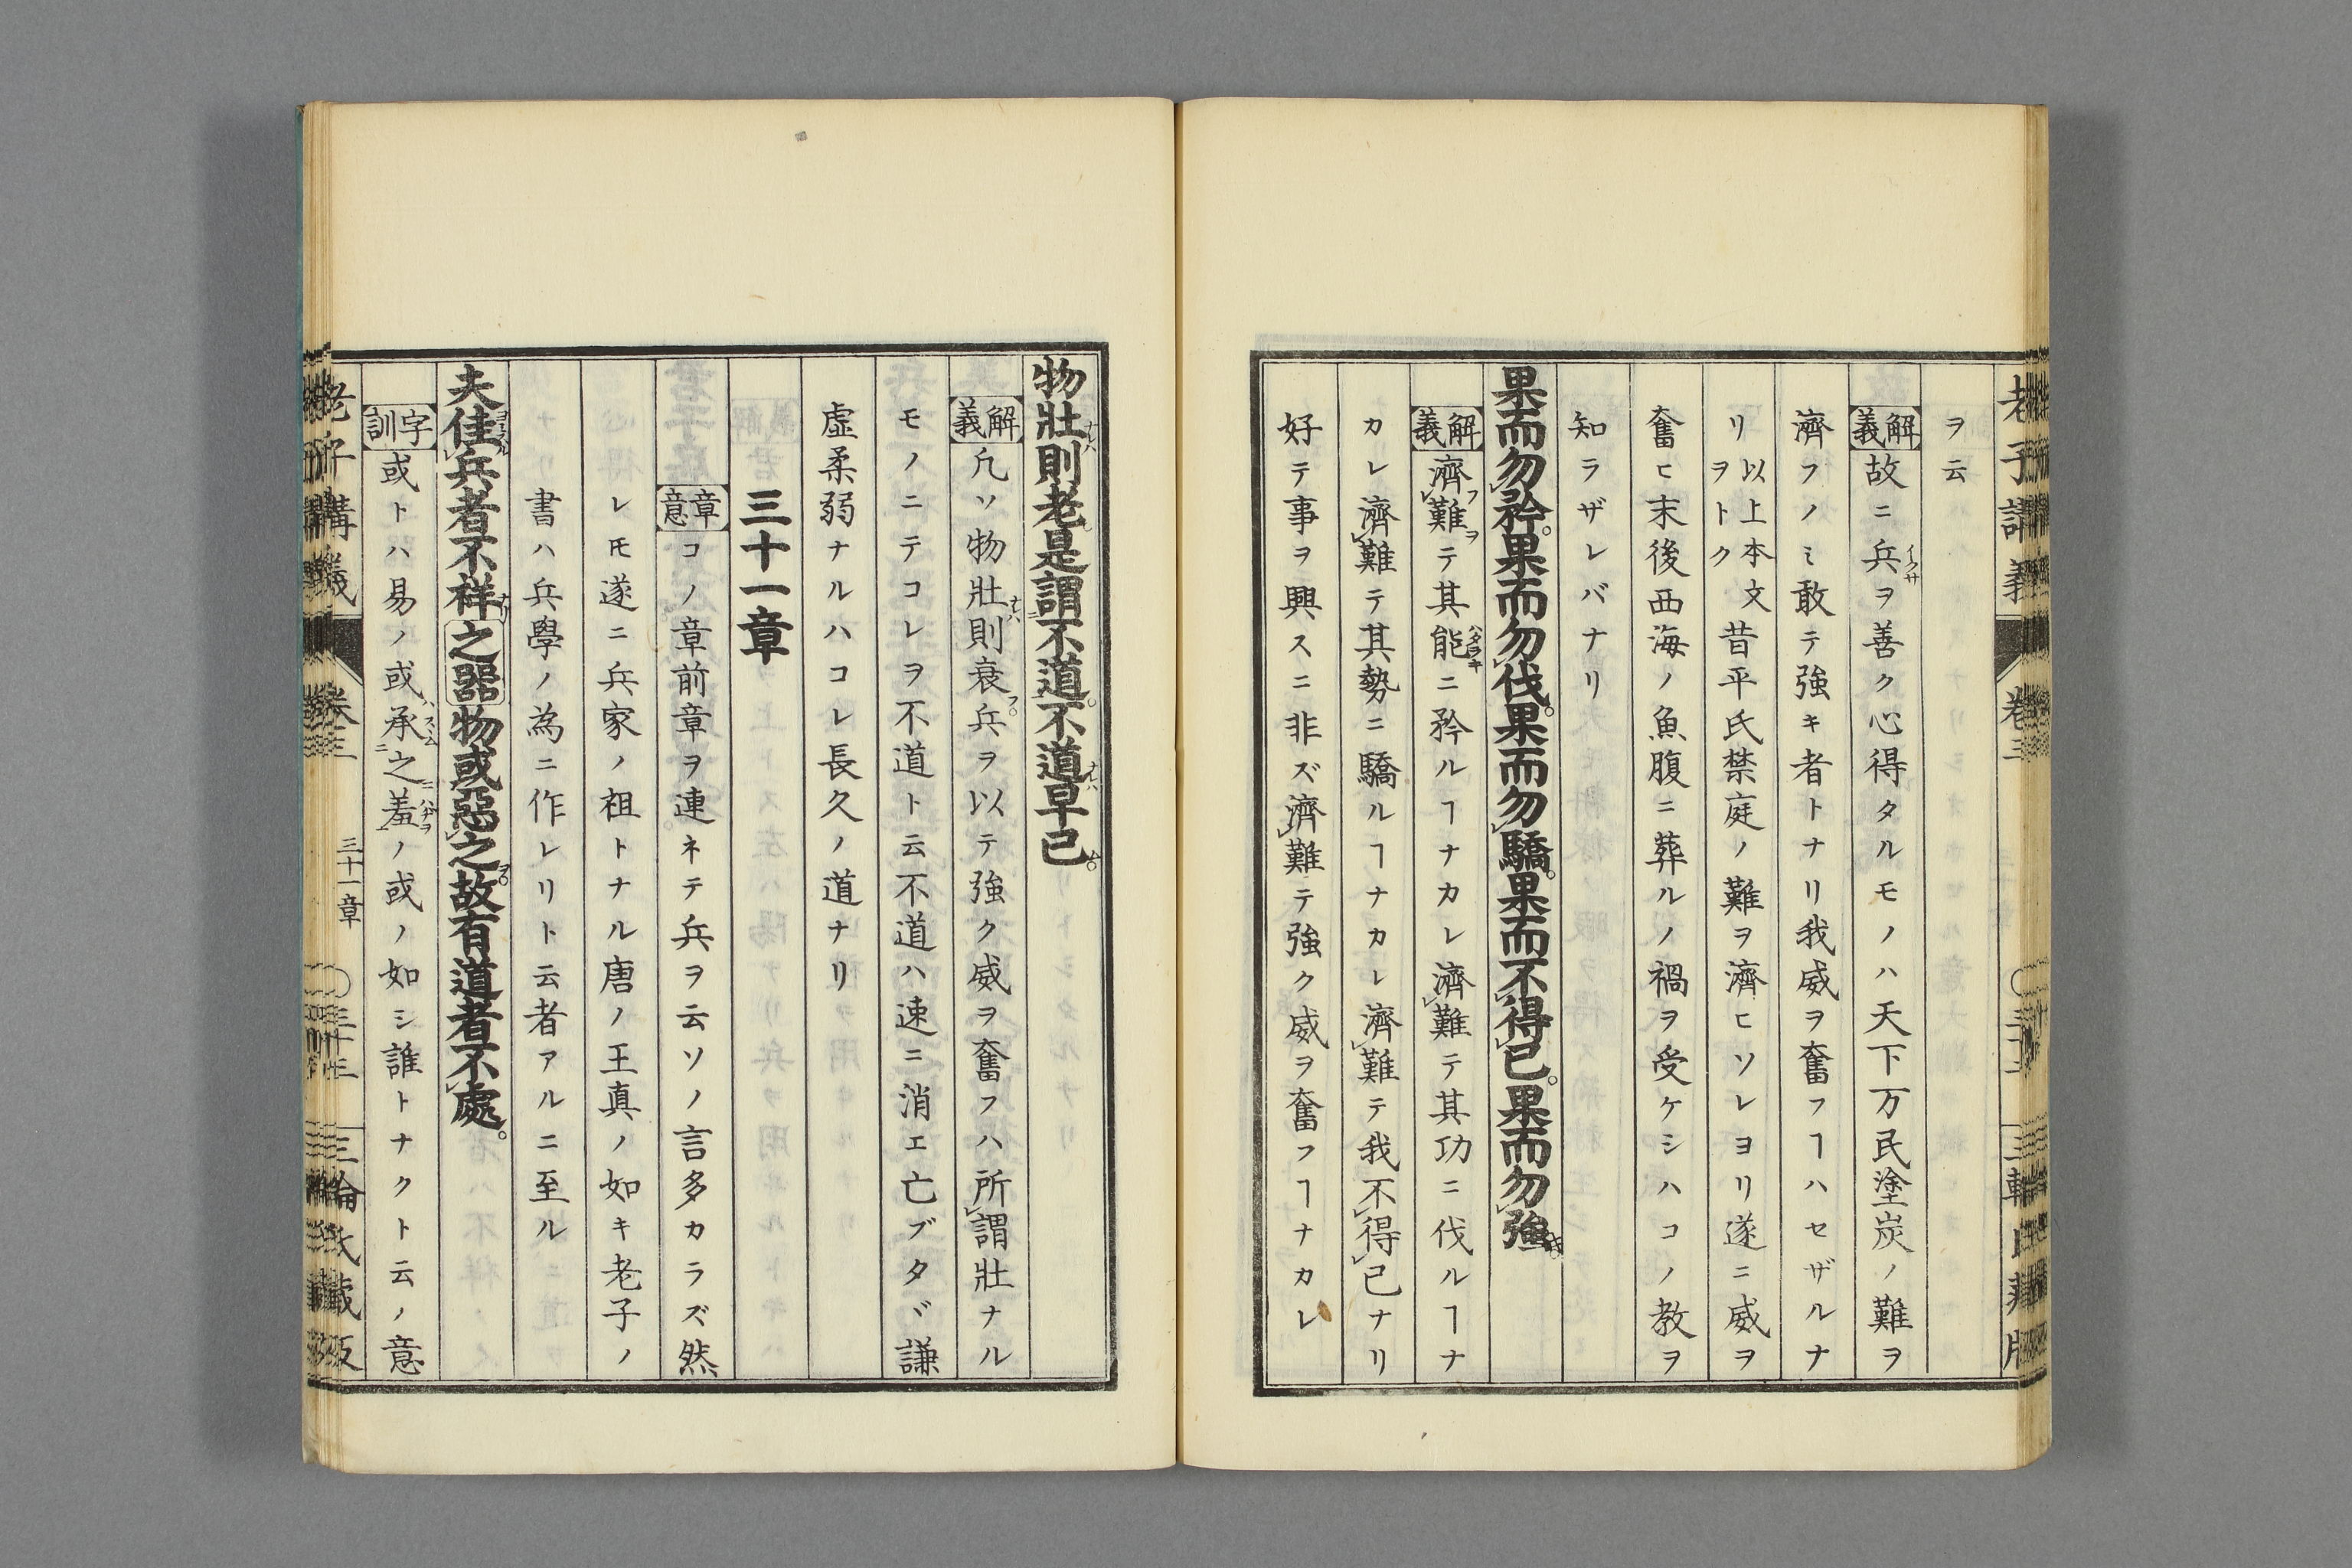 老子講義
卷三
ヲ云
解義 故ニ兵ヲ善ク心得タルモノハ天下万民塗炭ノ難ヲ
濟フノミ敢テ強キ者トナリ我威ヲ奮フヿハセザルナ
リ以上本文ヲトク昔平氏禁庭ノ難ヲ濟ヒソレヨリ遂ニ威ヲ
奮ヒ末後西海ノ魚腹ニ葬ルノ禍ヲ受ケシハコノ教ヲ
知ラザレバナリ
果而勿矜。果而勿伐。果而勿驕。果而不得已。果而勿強
解義 濟難テ其能ニ矜ルヿナカレ濟難テ其功ニ伐ルヿナ
カレ濟難テ其勢ニ驕ルヿナカレ濟難テ我不得已ナリ
好テ事ヲ興スニ非ズ濟難テ強ク威ヲ奮フヿナカレ
物壯則老是謂不道。不道早已
解義 凡ソ物壯則衰兵ヲ以テ強ク威ヲ奮フハ所謂壯ナル
モノニテコレヲ不道ト云不道ハ速ニ消エ亡ブタゞ謙
虚柔弱ナルハコレ長久ノ道ナリ
三十一章
章意 コノ章前章ヲ連ネテ兵ヲ云ソノ言多カラズ然
レ𪜈遂ニ兵家ノ祖トナル唐ノ王真ノ如キ老子ノ
書ハ兵學ノ為ニ作レリト云者アルニ至ル
夫佳兵者不祥之器物或惡之故有道者不處。
字訓 或トハ易ノ或承之羞ノ或ノ如シ誰トナクト云ノ意
卷三
三十一章